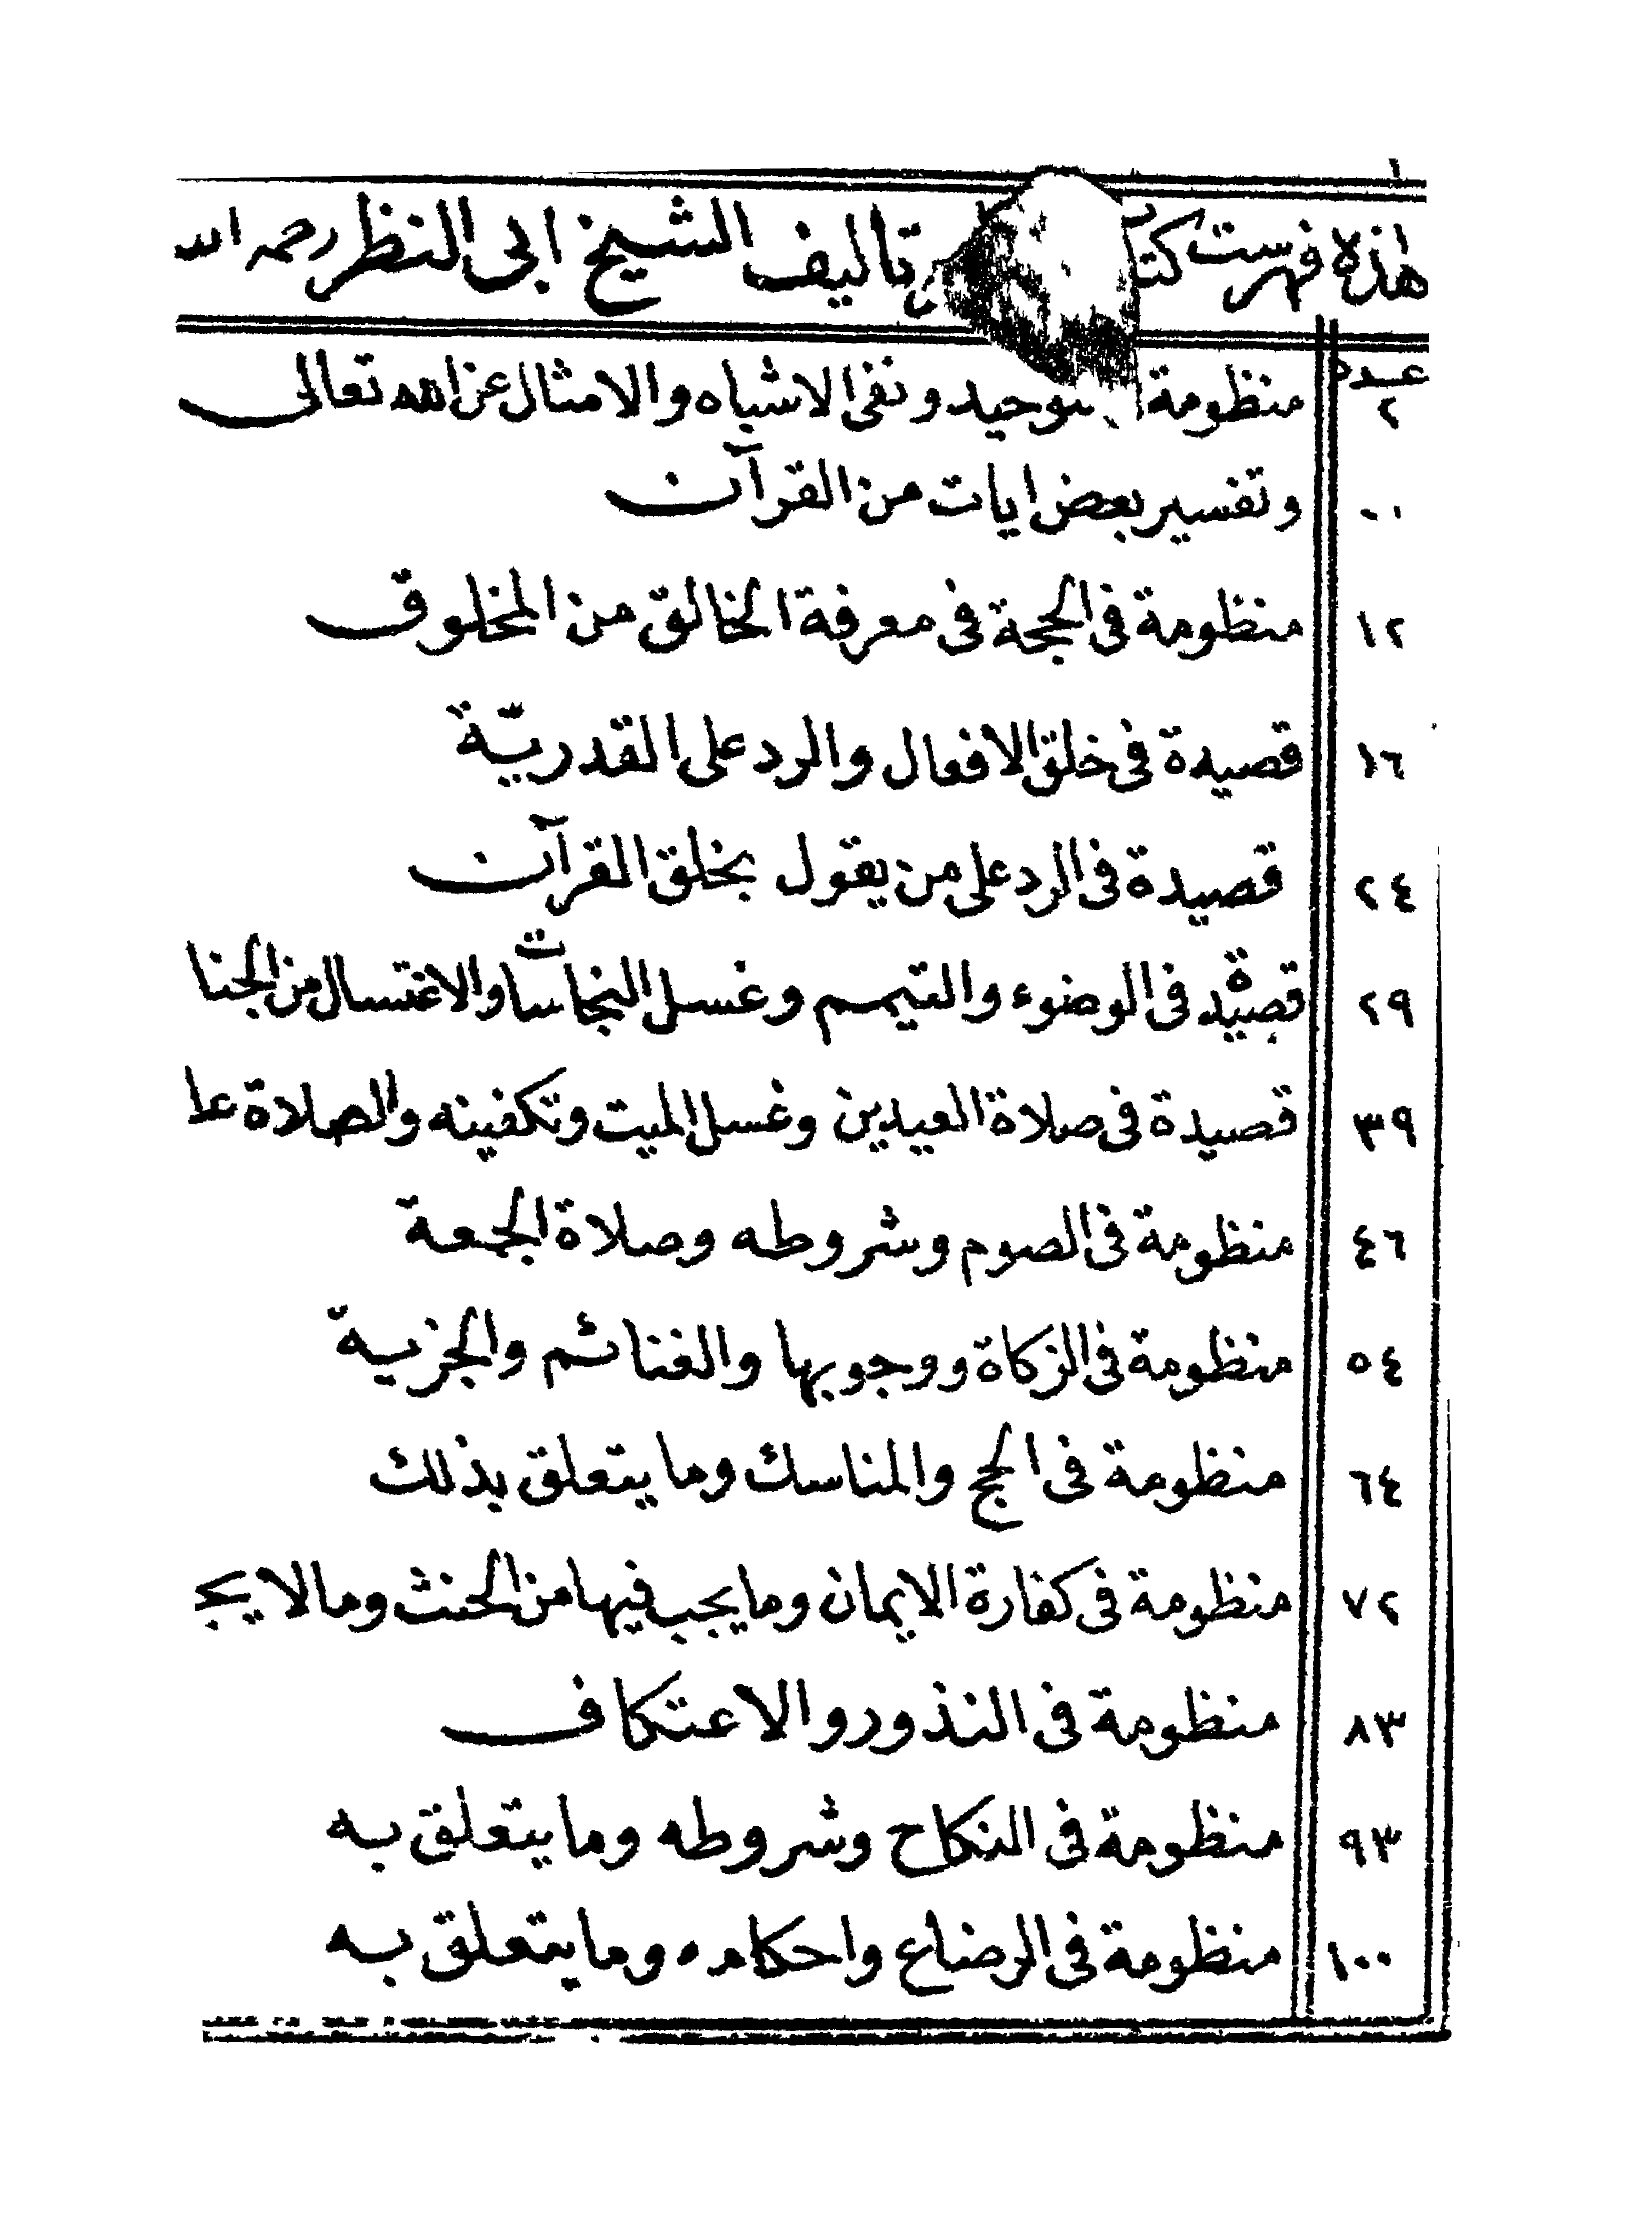 ١
هذه فهرست كتا تأليف الشيخ ابى النظر رحمه الله
عدد
٢ منظومة التوحيد ونفى الاشباه والامثال عن الله تعالى
٠٠ وتفسير بعض ايات من القرآن
١٢ منظومة فى الحجة فى معرفة الخالق من المخلوق
١٦ قصيدة فى خلق الافعال والرد على القدريّة
٢٤ قصيدة فى الرد على من يقول بخلق القرآن
٢٩ قصيدة فى الوضوء والتيمم وغسل النجاسات والاغتسال من الجنا
٣٩ قصيدة فى صلاة العيدين وغسل الميت وتكفينه والصلاة عل
٤٦ منظومة فى الصوم وشروطه وصلاة الجمعة
٥٤ منظومة فى الزكاة ووجوبها والغنائم والجزية
٦٤ منظومة فى الحج والمناسك وما يتعلق بذلك
٧٢ منظومة فى كفارة الايمان وما يجب فيها من الحنث وما لا يجـ
٨٣ منظومة فى النذور والاعتكاف
٩٣ منظومة فى النكاح وشروطه وما يتعلق به
١٠٠ منظومة فى الرضاع واحكامه وما يتعلق به